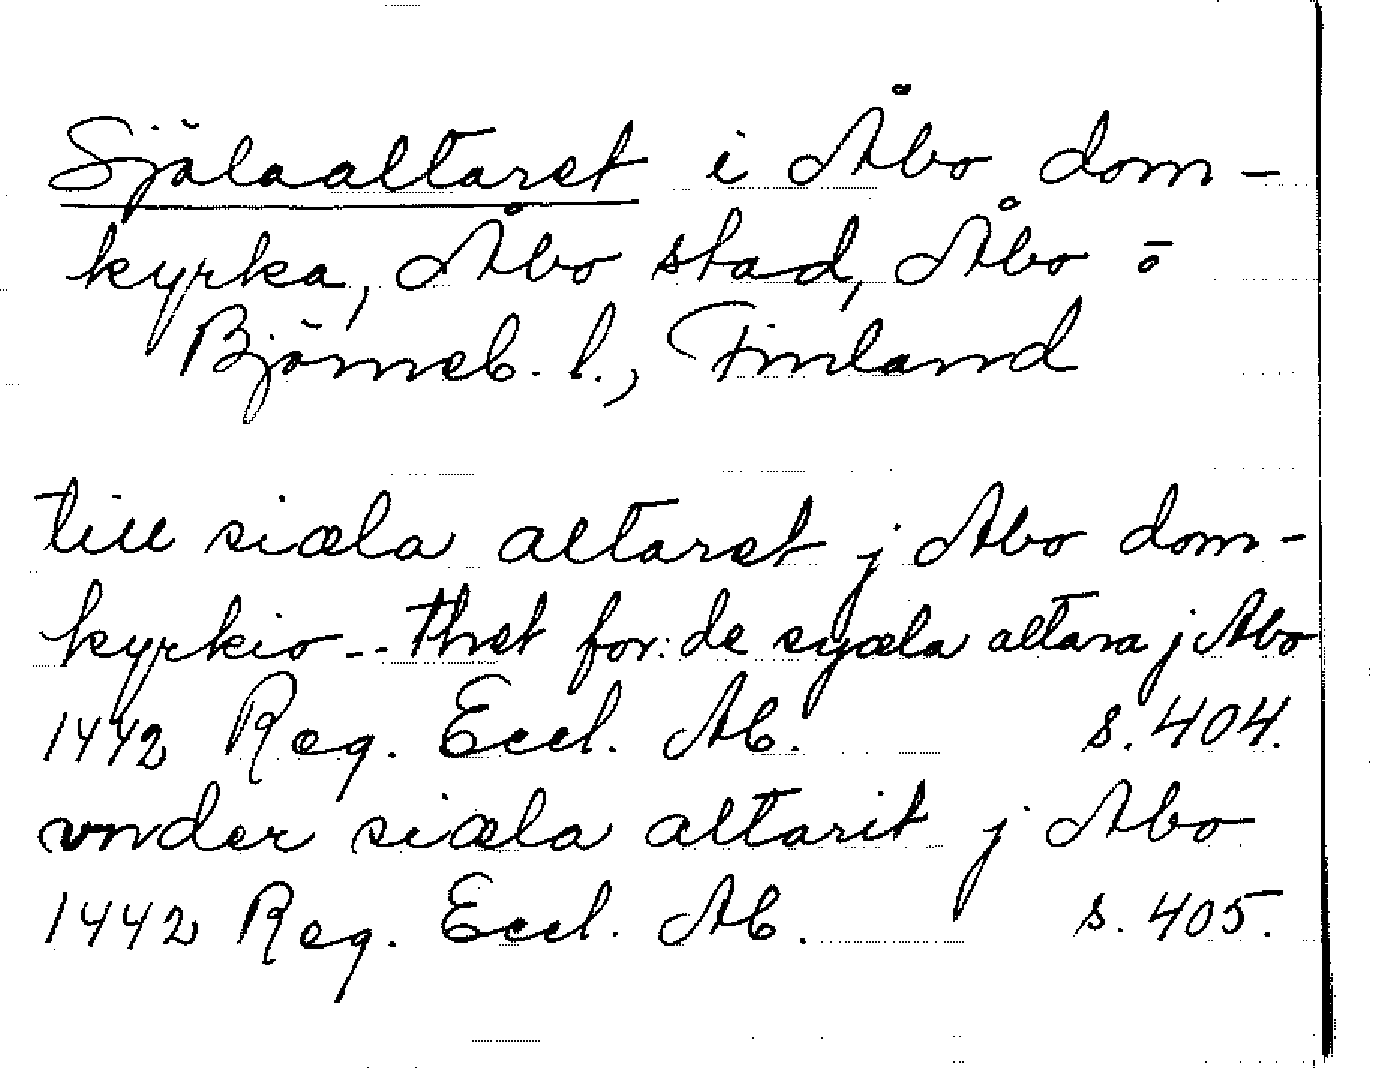 Själaaltaret i Åbo dom-
kyrka, Åbo stad, Åbo o
Björneb. l., Finland
till siæla altaret j Abo dom-
kyrkio -- thet for:de syæla altara j Abo
1442 Reg. Eccl. Ab. s. 404.
vnder siæla altarit j Abo
1442 Reg. Eccl. Ab. s. 405.